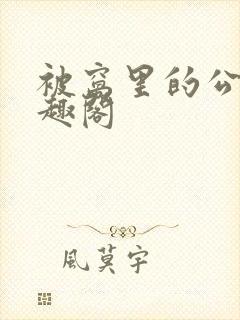 被窝里的公
趣阁
風莫宇